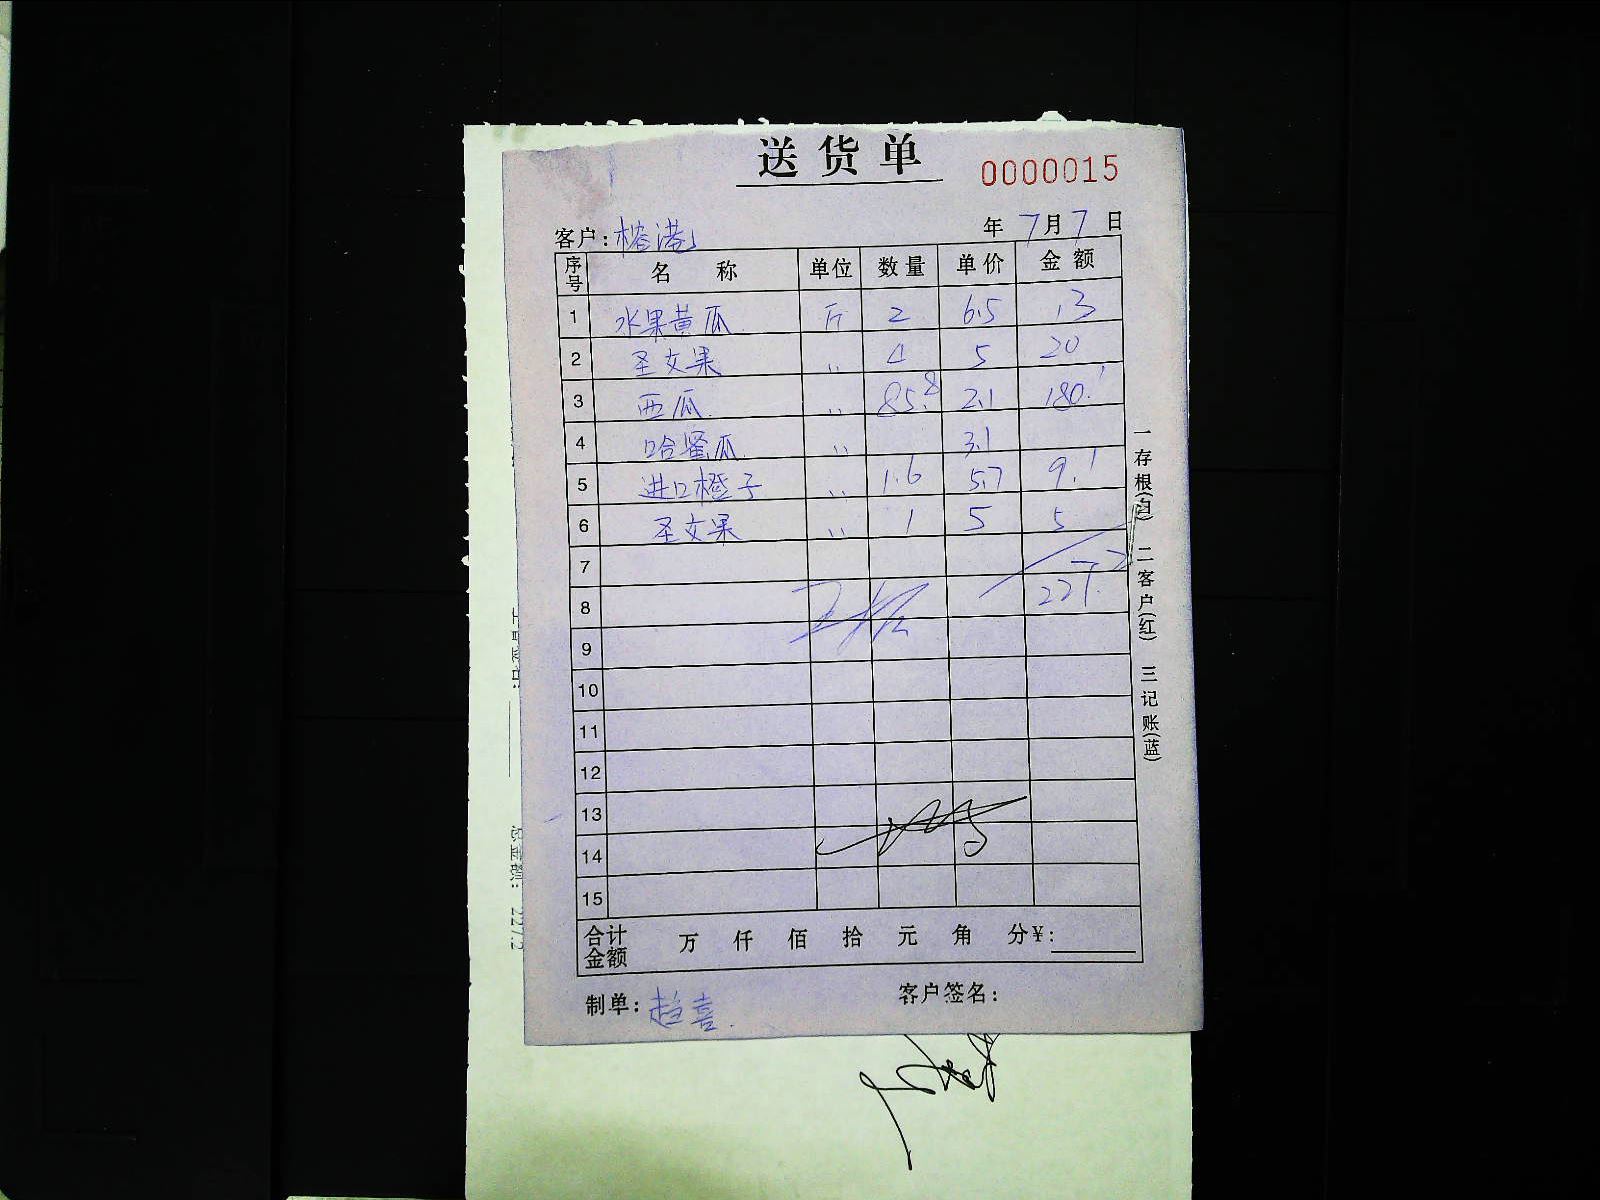 送货单 0000015
客户:榕港 年 7月7日
序号 名称 单位 数量 单价 金额
1 水果黄瓜 斤 2 6.5 13
2 圣女果 〃 4 5 20
3 西瓜 〃 85.8 2.1 180.1
4 哈蜜瓜 〃 3.1
5 进口橙子 〃 1.6 5.7 9.1
6 圣女果 〃 1 5 5
7
8 227.2
9
10
11
12
13
14
15
合计金额 万 仟 佰 拾 元 角 分¥:
制单:赵喜. 客户签名:
一存根(白) 二客户(红) 三记账(蓝)
总金额: 227.2